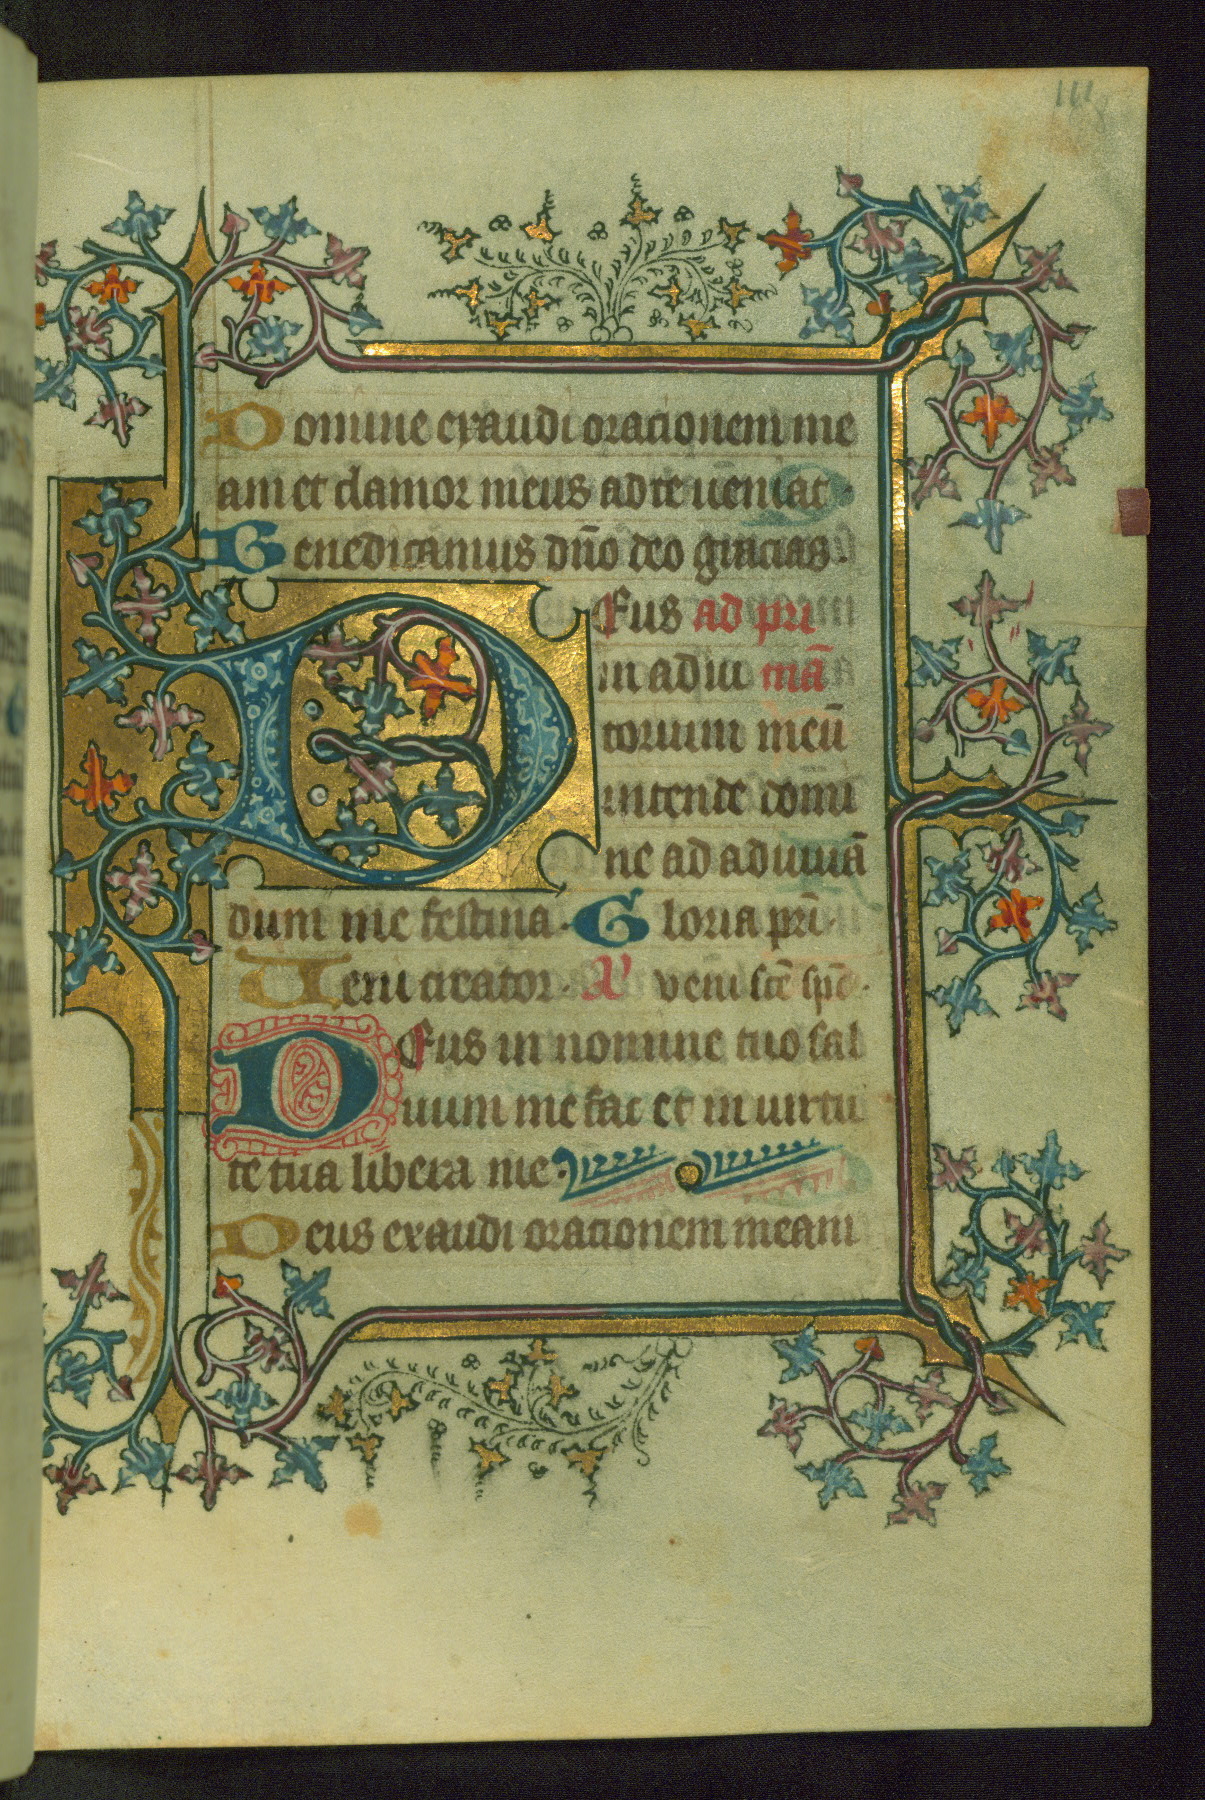 Domine exaudi orationem me
am et clamor meus ad te ueniat ·
Benedicamus dño deo gracias ·
DEus ad pri
in adiu mā
torium meū
intende domi
ne ad adiuuā
dum me festina · Gloria pr̄i ·
Ueni creator · A̕ veni sc̄e sp̄c ·
DEus in nomine tuo sal
uum me fac et in uirtu
te tua libera me ·
Deus exaudi orationem meam